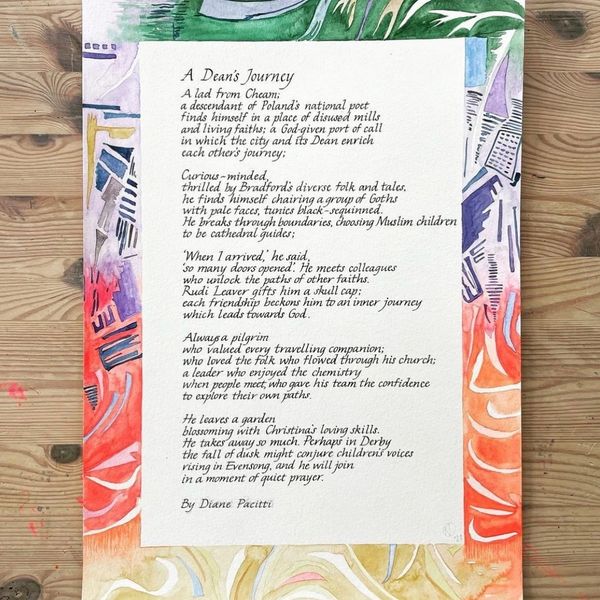 A Dean's Journey
A lad from Cheam;
a descendant of Poland's national poet
finds himself in a place of disused mills
and living faiths; a God-given port of call
in which the city and its Dean enrich
each other's journey;
Curious-minded,
thrilled by Bradford's diverse folk and tales,
he finds himself chairing a group of Goths
with pale faces, tunics black-sequinned.
He breaks through boundaries, choosing Muslim children
to be cathedral guides;
'When I arrived,' he said,
'so many doors opened'. He meets colleagues
who unlock the paths of other faiths.
Rudi Leaver gifts him a skull cap;
each friendship beckons him to an inner journey
which leads towards God.
Always a pilgrim
who valued every travelling companion;
who loved the folk who flowed through his church;
a leader who enjoyed the chemistry
when people meet, who gave his team the confidence
to explore their own paths.
He leaves a garden
blossoming with Christina's loving skills.
He takes away so much. Perhaps in Derby
the fall of dusk might conjure children's voices
rising in Evensong, and he will join
in a moment of quiet prayer.
By Diane Pacitti